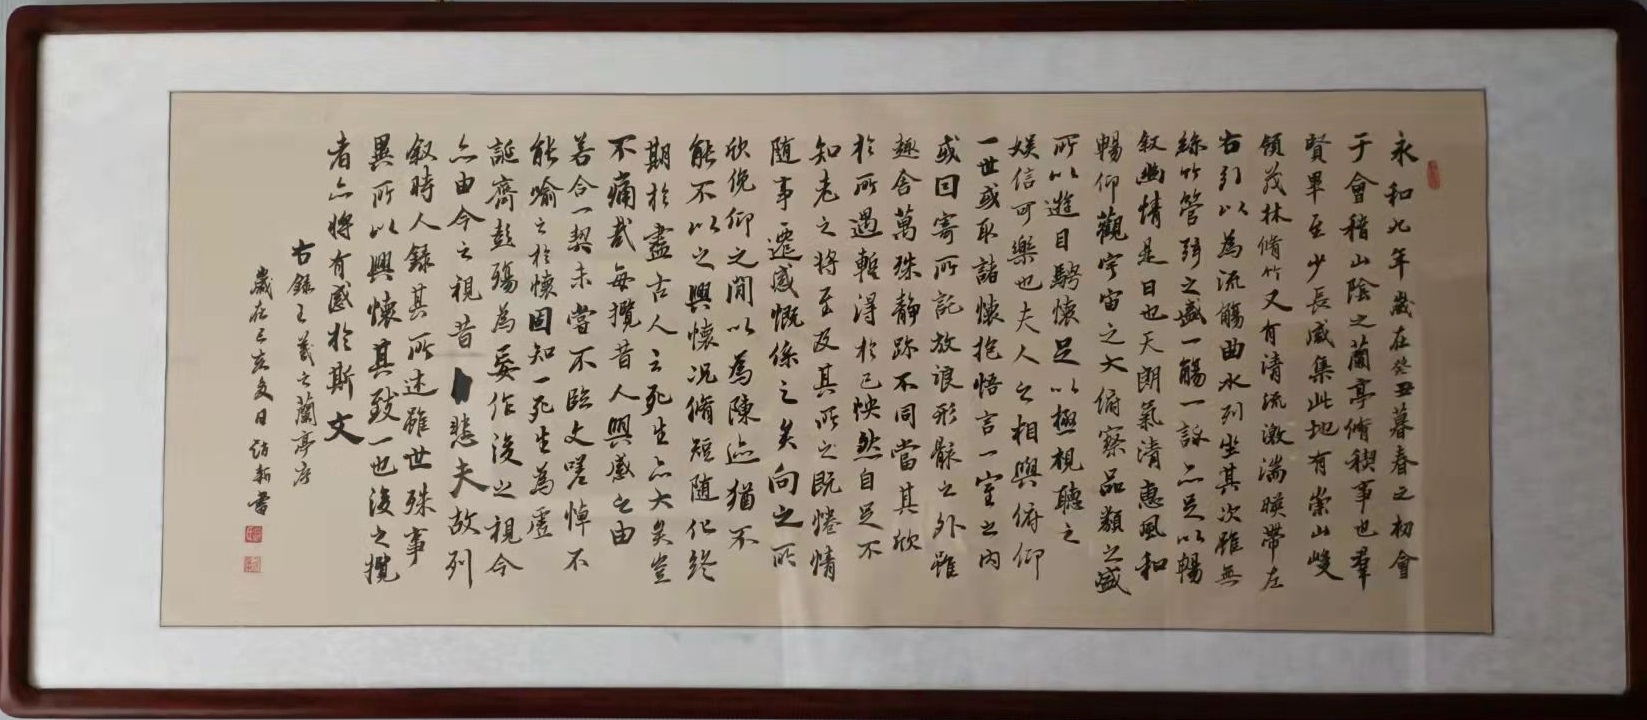 永和九年歲在癸丑暮春之初會
于會稽山陰之蘭亭脩稧事也羣
賢畢至少長咸集此地有崇山峻
領茂林脩竹又有清流激湍暎帶左
右引以為流觴曲水列坐其次雖無
絲竹管弦之盛一觴一詠亦足以暢
叙幽情是日也天朗氣清惠風和
暢仰觀宇宙之大俯察品類之盛
所以遊目騁懷足以極視聽之
娛信可樂也夫人之相與俯仰
一世或取諸懷抱悟言一室之內
或因寄所託放浪形骸之外雖
趣舍萬殊靜躁不同當其欣
於所遇暫得於己怏然自足不
知老之將至及其所之既惓情
随事遷感慨係之矣向之所
欣俛仰之閒以為陳迹猶不
能不以之興懷況脩短随化終
期於盡古人云死生亦大矣豈
不痛哉每攬昔人興感之由
若合一契未嘗不臨文嗟悼不
能喻之於懷固知一死生為虛
誕齊彭殤為妄作後之視今
亦由今之視昔悲夫故列
叙時人錄其所述雖世殊事
異所以興懷其致一也後之攬
者亦將有感於斯文
右錄王羲之蘭亭序
歲在己亥夏日新書